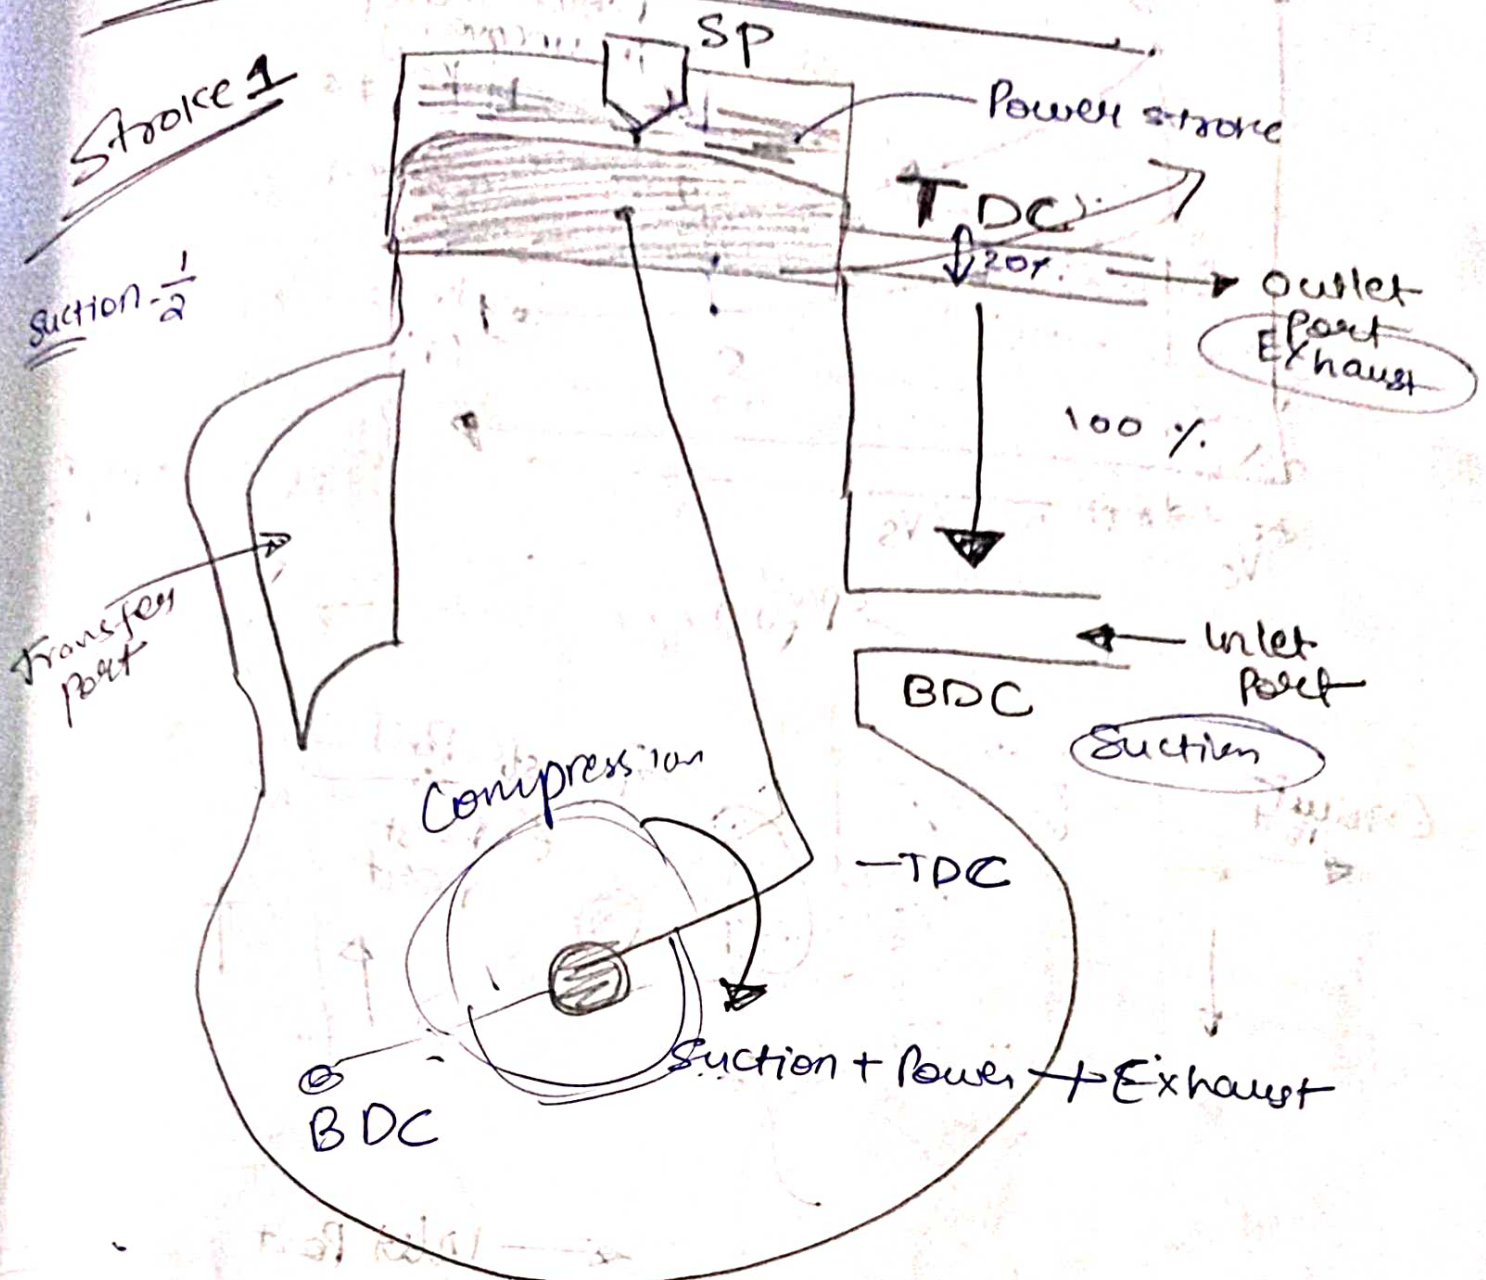 SP
Stroke 1
Power stroke
TDC
20%
Suction - 1/2
Outlet
Port
Exhaust
100 %
Transfer
Port
Inlet
Port
BDC
Suction
Compression
-TDC
Suction + Power + Exhaust
BDC